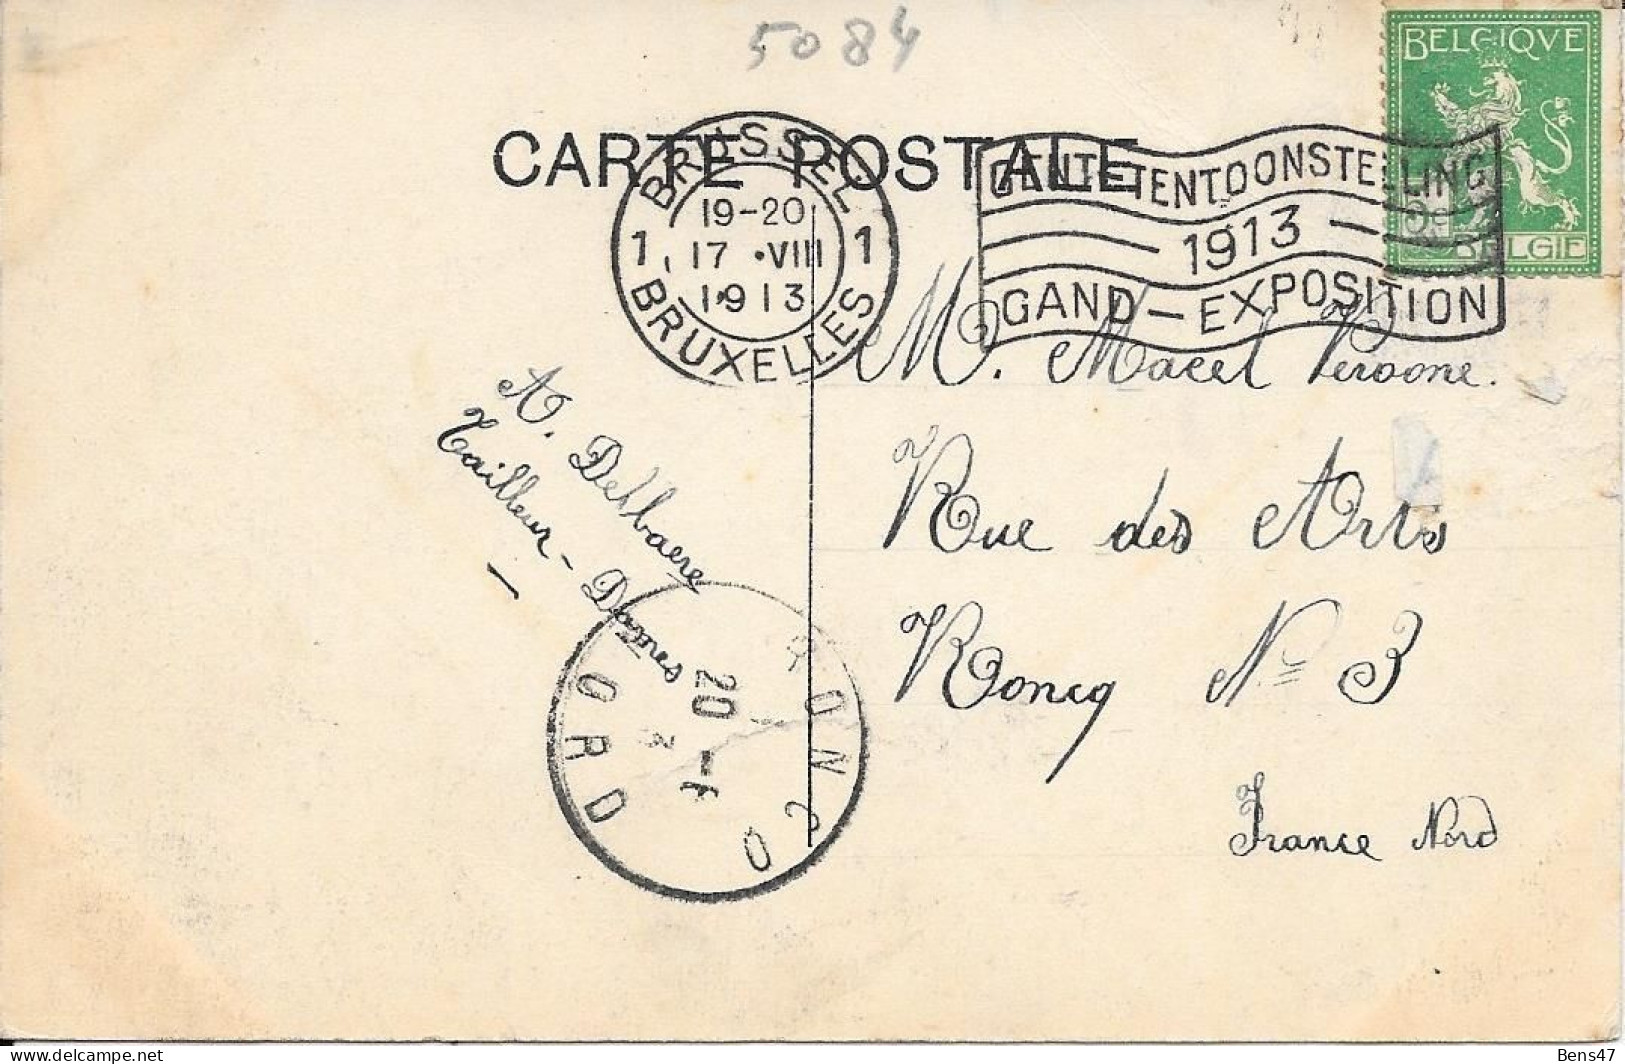 5084
BELGIQVE
BELGIE
CARTE POSTALE
BRUSSEL
19-20
1 17 •VIII 1
1913
BRUXELLES
GENT-TENTOONSTELLING
1913
GAND-EXPOSITION
M. Macel Peroone.
A. Delbaere
Tailleur - Dames
Rue des Arts
Roncq N° 3
France Nord
RONCQ
20 -
NORD
Bens47